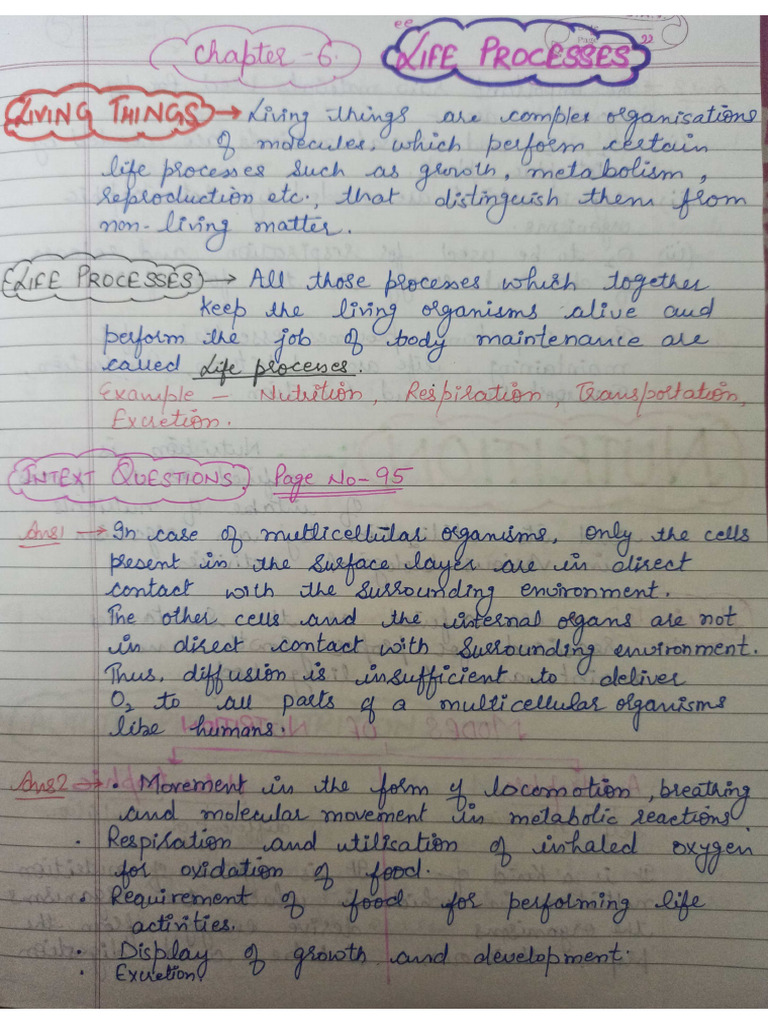 Chapter - 6. "LIFE PROCESSES"
LIVING THINGS → Living things are complex organisations
of molecules, which perform certain
life processes such as growth, metabolism,
reproduction etc., that distinguish them from
non-living matter.
LIFE PROCESSES → All those processes which together
keep the living organisms alive and
perform the job of body maintenance are
called Life processes.
Example - Nutrition, Respiration, Transportation,
Excretion.
INTEXT QUESTIONS Page No-95
Ans1 → In case of multicellular organisms, only the cells
present in the surface layer are in direct
contact with the surrounding environment.
The other cells and the internal organs are not
in direct contact with surrounding environment.
Thus, diffusion is insufficient to deliver
O₂ to all parts of a multicellular organisms
like humans.
Ans2 → • Movement in the form of locomotion, breathing
and molecular movement in metabolic reactions
• Respiration and utilisation of inhaled oxygen
for oxidation of food.
• Requirement of food for performing life
activities.
• Display of growth and development.
• Excretion.